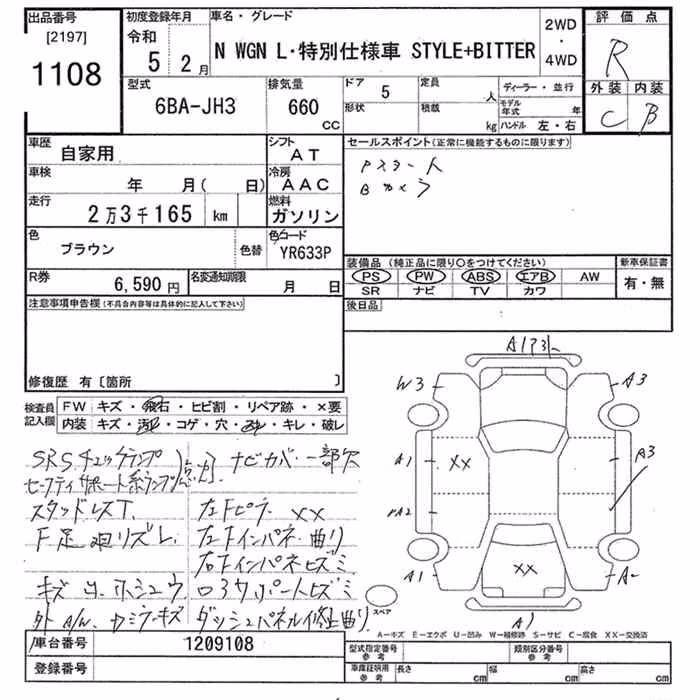 出品番号
[2197]
1108
初度登録年月
令和
5 2月
車名・グレード
N WGN L・特別仕様車 STYLE+BITTER
2WD
・
4WD
評価点
R
外装 内装
C B
型式
6BA-JH3
排気量
660
CC
ドア 5
形状
定員 人
積載 kg
ディーラー・並行
モデル年式 年
ハンドル 左・右
車歴
自家用
シフト
AT
車検
年 月( 日)
冷房
AAC
走行
2万3千165 km
燃料
ガソリン
色
ブラウン
色替
色コード
YR633P
R券
6,590円
名変通知期限
月 日
セールスポイント(正常に機能するものに限ります)
Pスタート
Bカメラ
装備品(純正品に限り○をつけてください)
PS PW ABS エアB AW
SR ナビ TV カワ
新車保証書
有・無
後日品
注意事項申告欄(不具合内容等は具体的に記入して下さい)
修復歴 有〔箇所 〕
検査員
記入欄
FW キズ・飛石・ヒビ割・リペア跡・×要
内装 キズ・汚れ・コゲ・穴・・キレ・破レ
SRSチェックランプ
セーフティサポート系ランプ
点灯
ナビカバー一部欠
スタッドレスT.
F足廻リズレ.
左Fピラー XX
左Fインパネ曲り
右Fインパネヒズミ
キズ
コアサポートヒズミ
外A/W. キズ
ダッシュパネル修正曲り
W3
A3
A1
XX
A3
A1
XX
A1
スペア
A―キズ E―エクボ U―凹み W―補修跡 S―サビ C―腐食 XX―交換済
車台番号
1209108
登録番号
型式指定番号
参考
類別区分番号
参考
車庫証明用
参考
長さ cm
幅 cm
高さ cm